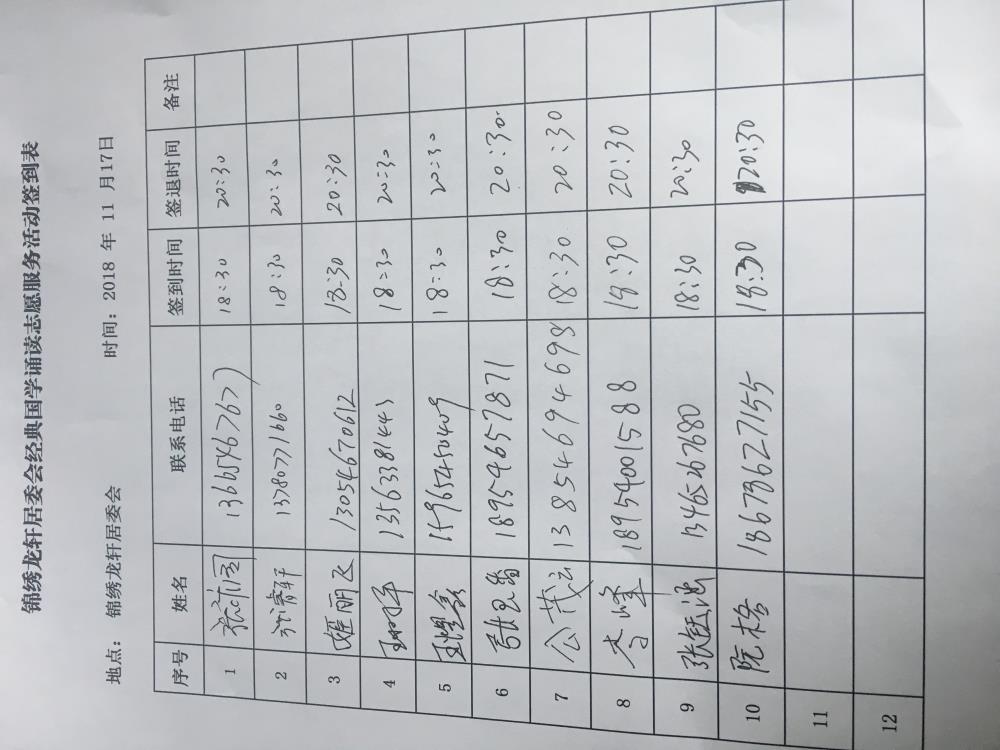 锦绣龙轩居委会经典国学诵读志愿服务活动签到表
地点： 锦绣龙轩居委会 时间：2018 年 11 月17日
序号 姓名 联系电话 签到时间 签退时间 备注
1 13665467677 18:30 20:30
2 13780771660 18:30 20:30
3 姬丽飞 13054670612 18:30 20:30
4 13563381443 18:30 20:30
5 15965450409 18:30 20:30
6 18954657871 18:30 20:30
7 公茂云 13854694698 18:30 20:30
8 李峰 18954001588 18:30 20:30
9 张钰涵 13465267680 18:30 20:30
10 阮格 18673627155 18:30 20:30
11
12